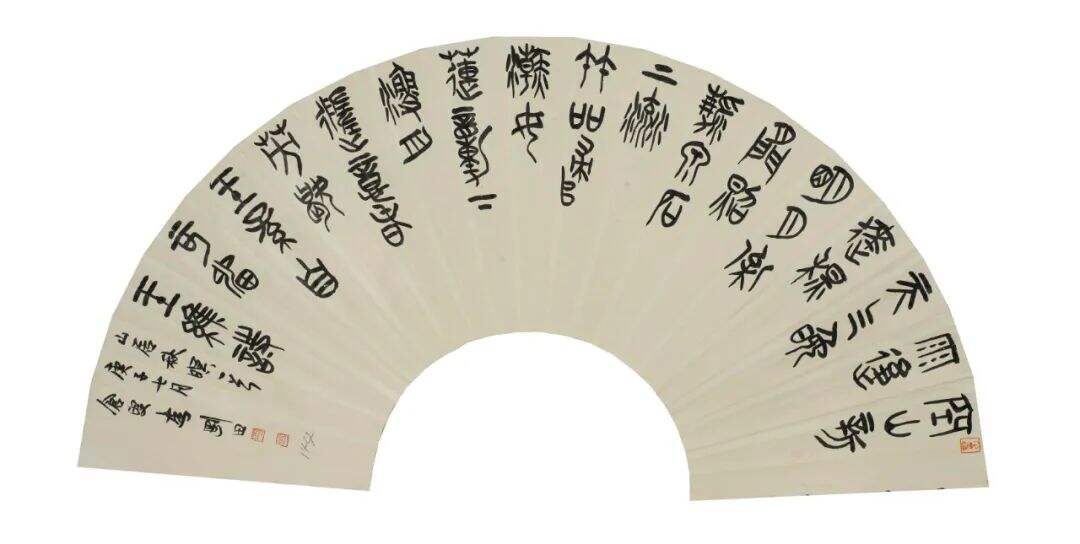 空山新
雨後
天气晚
來秋
明月松
間照
清泉石
上流
竹喧歸
浣女
蓮動下
漁舟
隨意春
芳歇
王孫自
可留
王維詩
山居秋暝
庚子七月
劉田